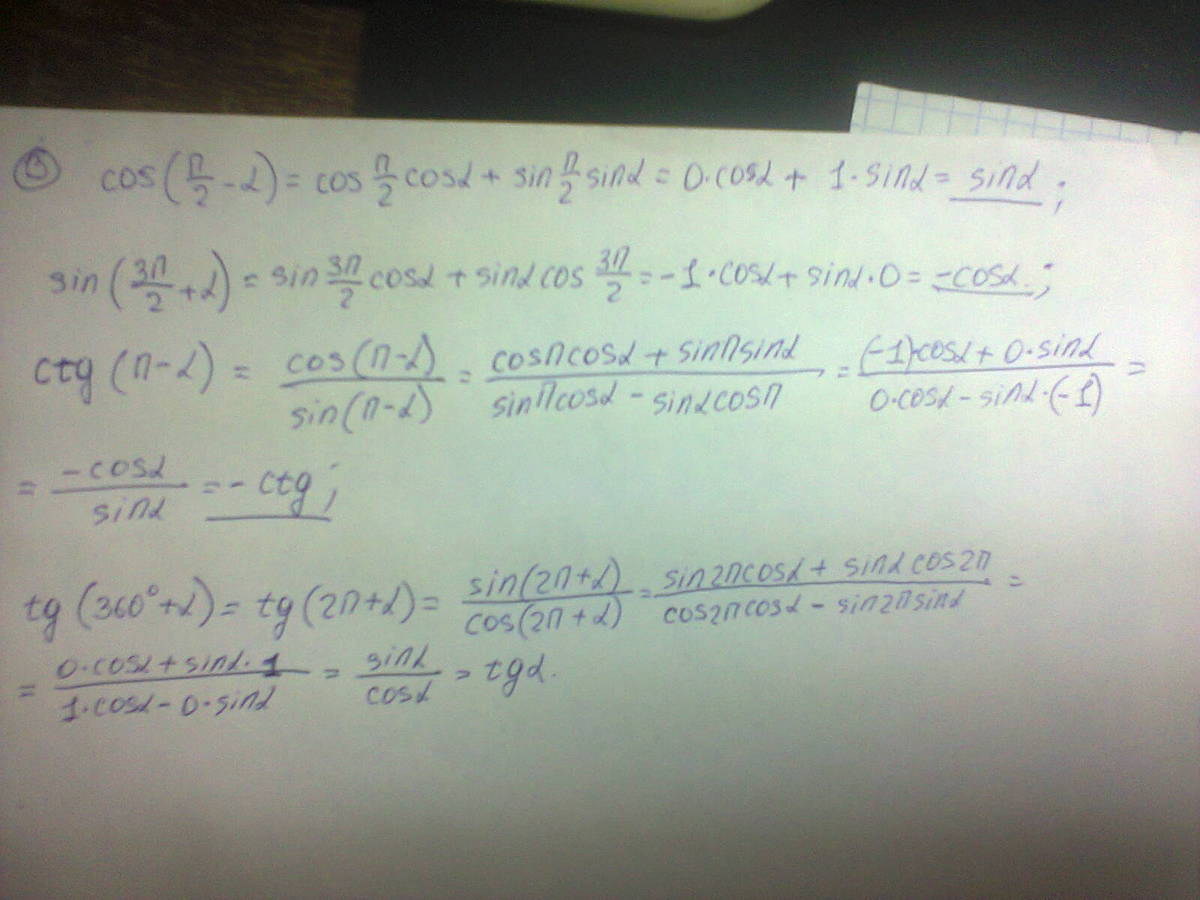 ③ cos(π/2 - α) = cos π/2 cosα + sin π/2 sinα = 0·cosα + 1·sinα = sinα;
sin(3π/2 + α) = sin 3π/2 cosα + sinα cos 3π/2 = -1·cosα + sinα·0 = -cosα.;
ctg(π-α) = cos(π-α)/sin(π-α) = (cosπcosα + sinπsinα)/(sinπcosα - sinαcosπ) = ((-1)·cosα + 0·sinα)/(0·cosα - sinα·(-1)) =
= -cosα/sinα = -ctg;
tg(360°+α) = tg(2π+α) = sin(2π+α)/cos(2π+α) = (sin2πcosα + sinα cos2π)/(cos2πcosα - sin2πsinα) =
= (0·cosα + sinα·1)/(1·cosα - 0·sinα) = sinα/cosα = tgα.